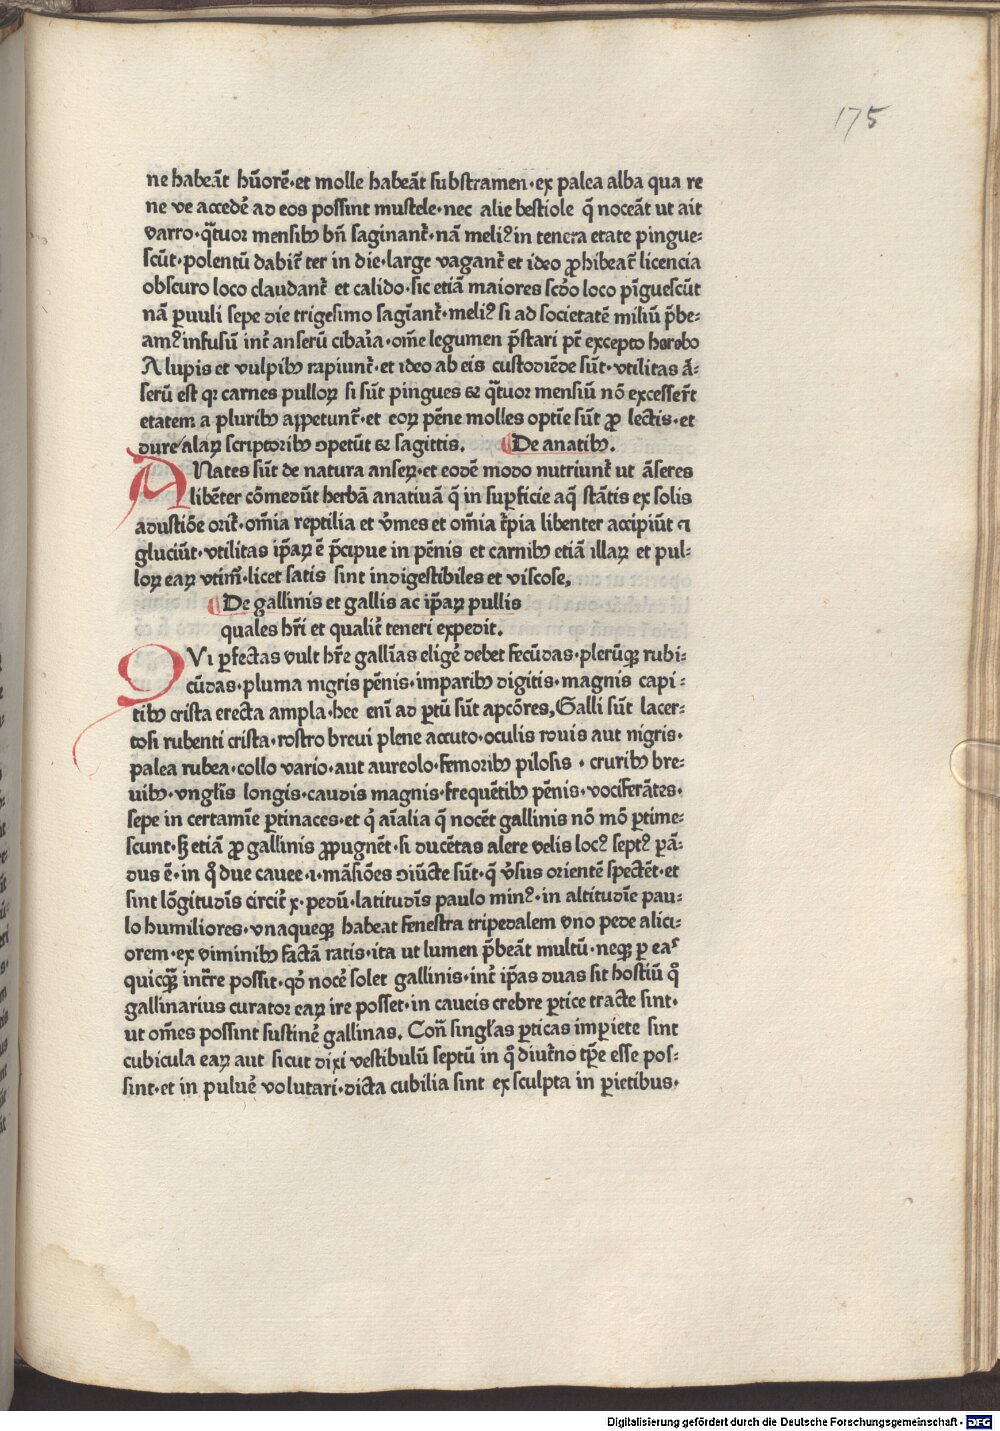 175
ne habeāt hūorē·et molle habeāt substramen·ex palea alba qua re
ne ve accedē ad eos possint mustele·nec alie bestiole q̄ noceāt ut ait
varro·q̄tuor mensibꝰ bñ saginant̄·nā meliꝰ in tenera etate pingue⸗
scūt·polentū dabit̄ ter in die·large vagant̄ et ideo ꝓhibeat̄ licencia
obscuro loco claudant̄ et calido·sic etiā maiores scd̄o loco pīguescūt
nā ꝑuuli sepe die trigesimo sagīant̄·meliꝰ si ad societatē miliū p̄be⸗
amꝰ infusū int̄ anserū cibaīa·om̄e legumen p̄stari pt̄ excepto horobo
A lupis et vulpibꝰ rapiunt̄·et ideo ab eis custodiēde sūt·vtilitas ā⸗
serū est qꝛ carnes pulloꝝ si sūt pingues ⁊ q̄tuor mensiū nō excesser̄t
etatem a pluribꝰ appetunt̄·et eoꝝ pēne molles optīe sūt ꝓ lectis·et
dure alaꝝ scriptoribꝰ ɔpetūt ⁊ sagittis. ¶De anatibꝰ.
ANates sūt de natura anseꝝ·et eodē modo nutriunt̄ ut āseres
libēter cōmedūt herbā anatiuā q̄ in suꝑficie aq̄ stātis ex solis
adustiōe orit̄·om̄ia reptilia et v̄mes et om̄ia t̄pia libenter accipiūt ⁊
gluciūt·vtilitas ip̄aꝝ ē p̄cipue in pēnis et carnibꝰ etiā illaꝝ et pul⸗
loꝝ eaꝝ vtim̄·licet satis sint indigestibiles et viscose,
¶De gallinis et gallis ac ip̄aꝝ pullis
quales hr̄i et qualit̄ teneri expedit.
QVi ꝑfectas vult hr̄e gallīas eligē debet fecūdas·plerūqꝫ rubi⸗
cūdas·pluma nigris pēnis·imparibꝰ digitis·magnis capi⸗
tibꝰ crista erecta ampla·hee enī ad ꝑtū sūt apcōres, Galli sūt lacer⸗
tosi rubenti crista·rostro breui plene accuto·oculis rouis aut nigris·
palea rubea·collo vario·aut aureolo·femoribꝰ pilosis · cruribꝰ bre⸗
uibꝰ·vngl̄is longis·caudis magnis·frequētibꝰ pēnis·vociferātes·
sepe in certamīe ꝑtinaces·et q̇ aīalia q̄ nocēt gallinis nō mō ꝑtime⸗
scunt·sꝫ etiā ꝓ gallinis ꝓpugnēt·si ducētas alere velis locꝰ septꝰ ꝑā⸗
dus ē·in q̊ due cauee·ı·māsiōes ɔiūcte sūt·q̄ v̄sus orientē spectēt·et
sint lōgitudīs circit̄ x·pedū·latitudīs paulo minꝰ·in altitudīe pau⸗
lo humiliores·vnaqueqꝫ habeat fenestra tripedalem vno pede alici⸗
orem·ex viminibꝰ factā ratis·ita ut lumen p̄beāt multū·neqꝫ ꝑ eaˢ
quicq̄ꝫ int̄re possit·qd̄ nocē solet gallinis·int̄ ip̄as duas sit hostiū q̊
gallinarius curator eaꝝ ire posset·in caueis crebre ꝑtice tracte sint·
ut om̄es possint sustinē gallinas. Con̄ singl̄as ꝑticas impiete sint
cubicula eaꝝ aut sicut dixi vestibulū septū in q̊ diut̄no tp̄e esse pos⸗
sint·et in puluē volutari·dicta cubilia sint exsculpta in ꝑietibus·
Digitalisierung gefördert durch die Deutsche Forschungsgemeinschaft - DFG